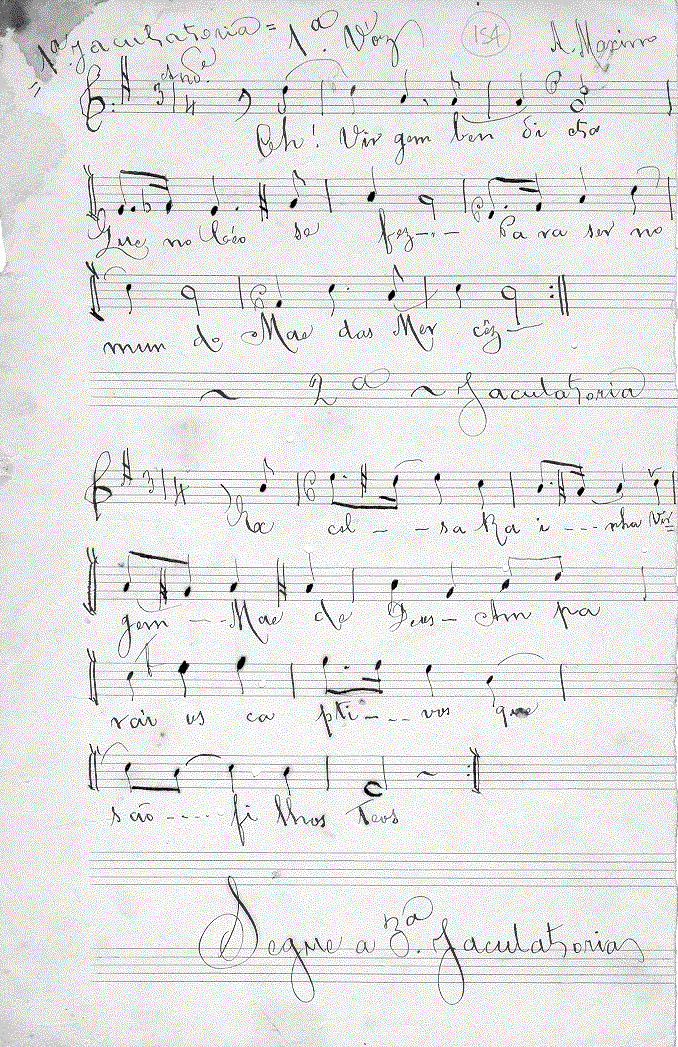 1ª Jaculatoria = 1ª Voz 154 A. Maximo
And.e
3/4
Oh! Vir gem ben di cta
Que no Céo se fez --- Pa ra ser no
mun do Mae das Mer cêz
~ 2ª ~ Jaculatoria
3/4
Ex cel - - sa Ra i --- nha Vir
gem --- Mae de Deus - Am pa
rai os ca pti --- vos que
são ---- fi lhos teos
Segue a 3ª. Jaculatorias